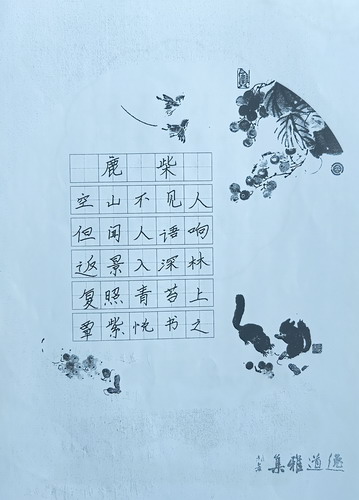 鹿柴
空山不见人
但闻人语响
返景入深林
复照青苔上
覃紫悦书之
集雅道